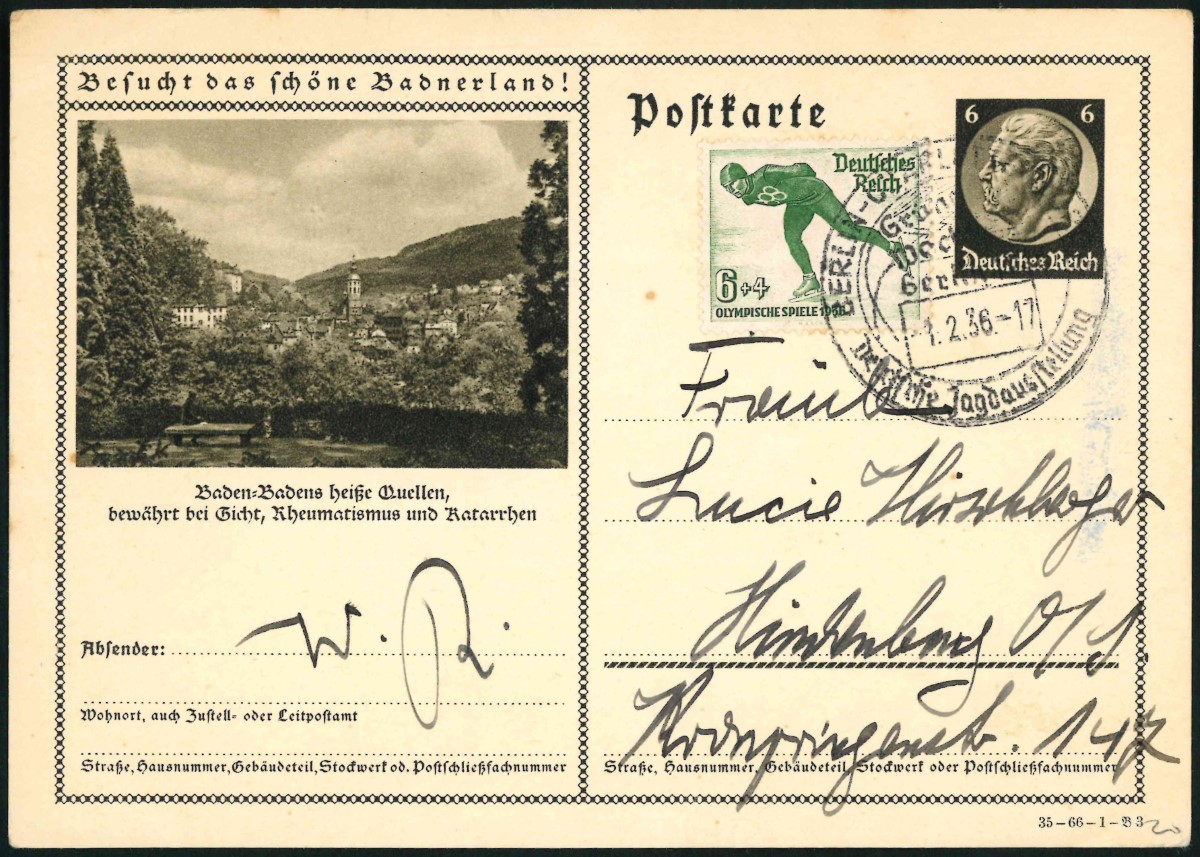 Besucht das schöne Badnerland!
Postkarte
6 6
Deutsches Reich
Deutsches
Reich
6+4
OLYMPISCHE SPIELE 1936
BERLIN
Grüne
Woche
Berlin
-1.2.36.-17
Deutsche Jagdausstellung
Fräulein
Lucie Hirschberger
Hindenburg O/S.
Kronprinzenstr. 147
Baden-Badens heiße Quellen,
bewährt bei Gicht, Rheumatismus und Katarrhen
Absender: W. R.
Wohnort, auch Zustell- oder Leitpostamt
Straße, Hausnummer, Gebäudeteil, Stockwerk od. Postschließfachnummer
Straße, Hausnummer, Gebäudeteil, Stockwerk oder Postschließfachnummer
35-66-1-B 3
20